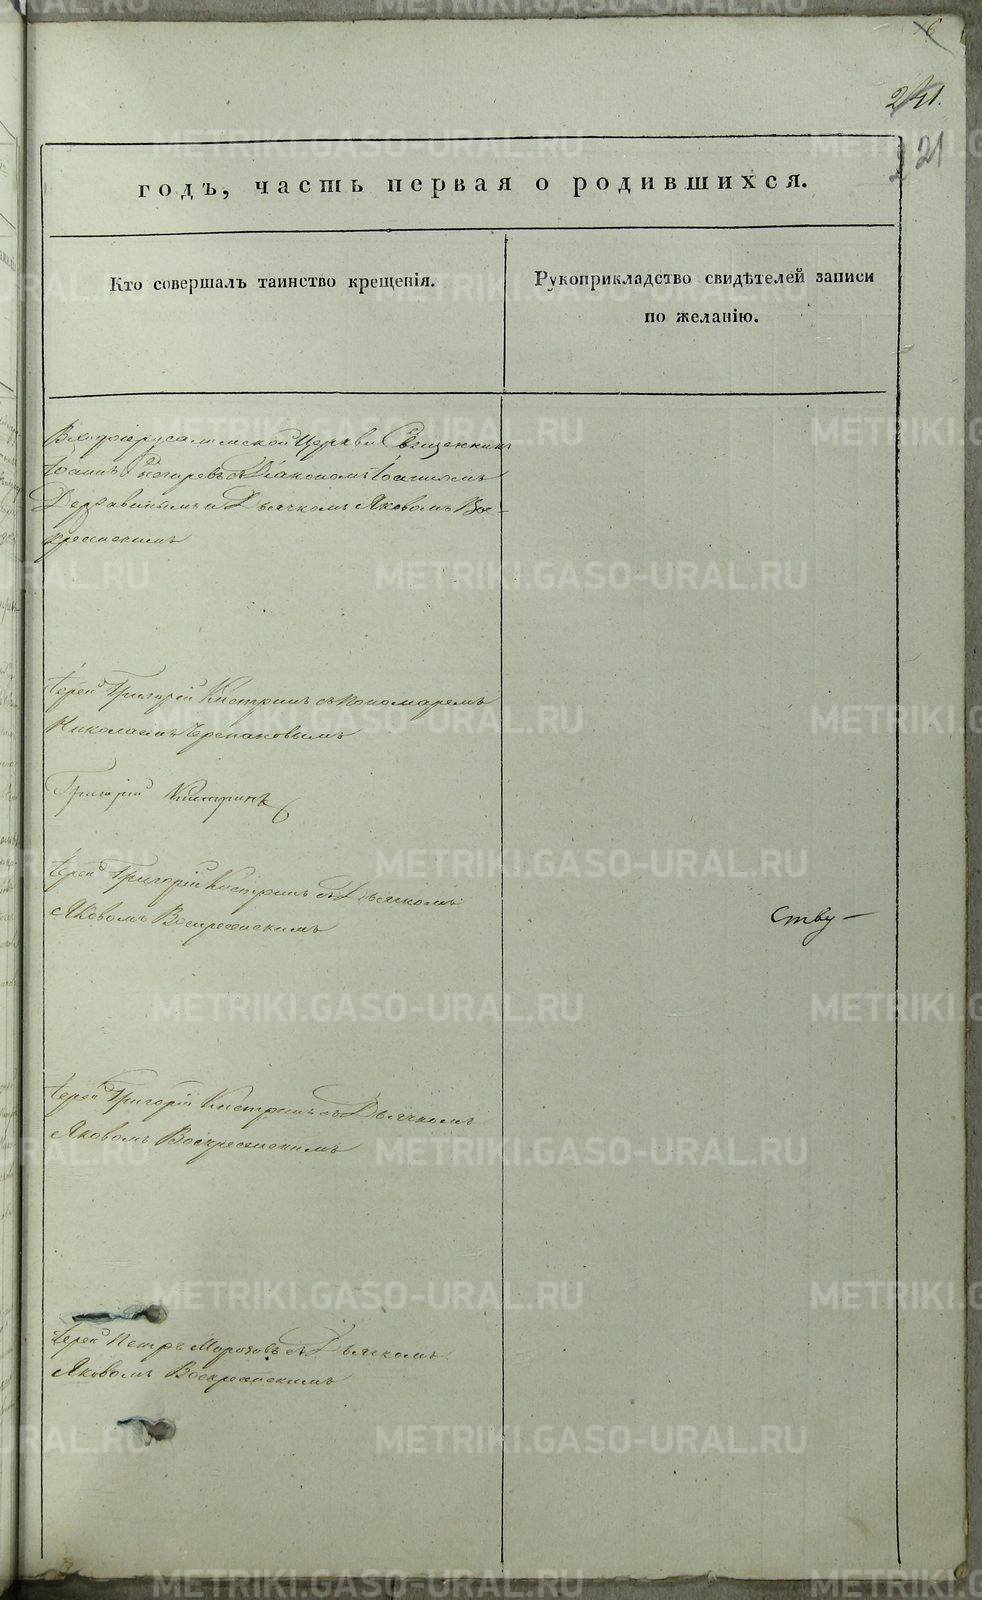 241.
21
годъ, часть первая о родившихся.
Кто совершалъ таинство крещенія.
Рукоприкладство свидѣтелей записи
по желанію.
Входоіерусалимской Церкви Священникъ
Іоаннъ съ Діакономъ Іоанномъ
Державинымъ и Дьячкомъ Яковомъ Вос-
кресенскимъ
Іерей Григорій Кистринъ съ Пономаремъ
Николаемъ Черепановымъ
Григорій Кистринъ
Іерей Григорій Кистринъ съ Дьячкомъ
Яковомъ Воскресенскимъ
Ству —
Іерей Григорій Кистринъ съ Дьячкомъ
Яковомъ Воскресенскимъ
Іерей Петръ Морозовъ съ Дьячкомъ
Яковомъ Воскресенскимъ
METRIKI.GASO-URAL.RU